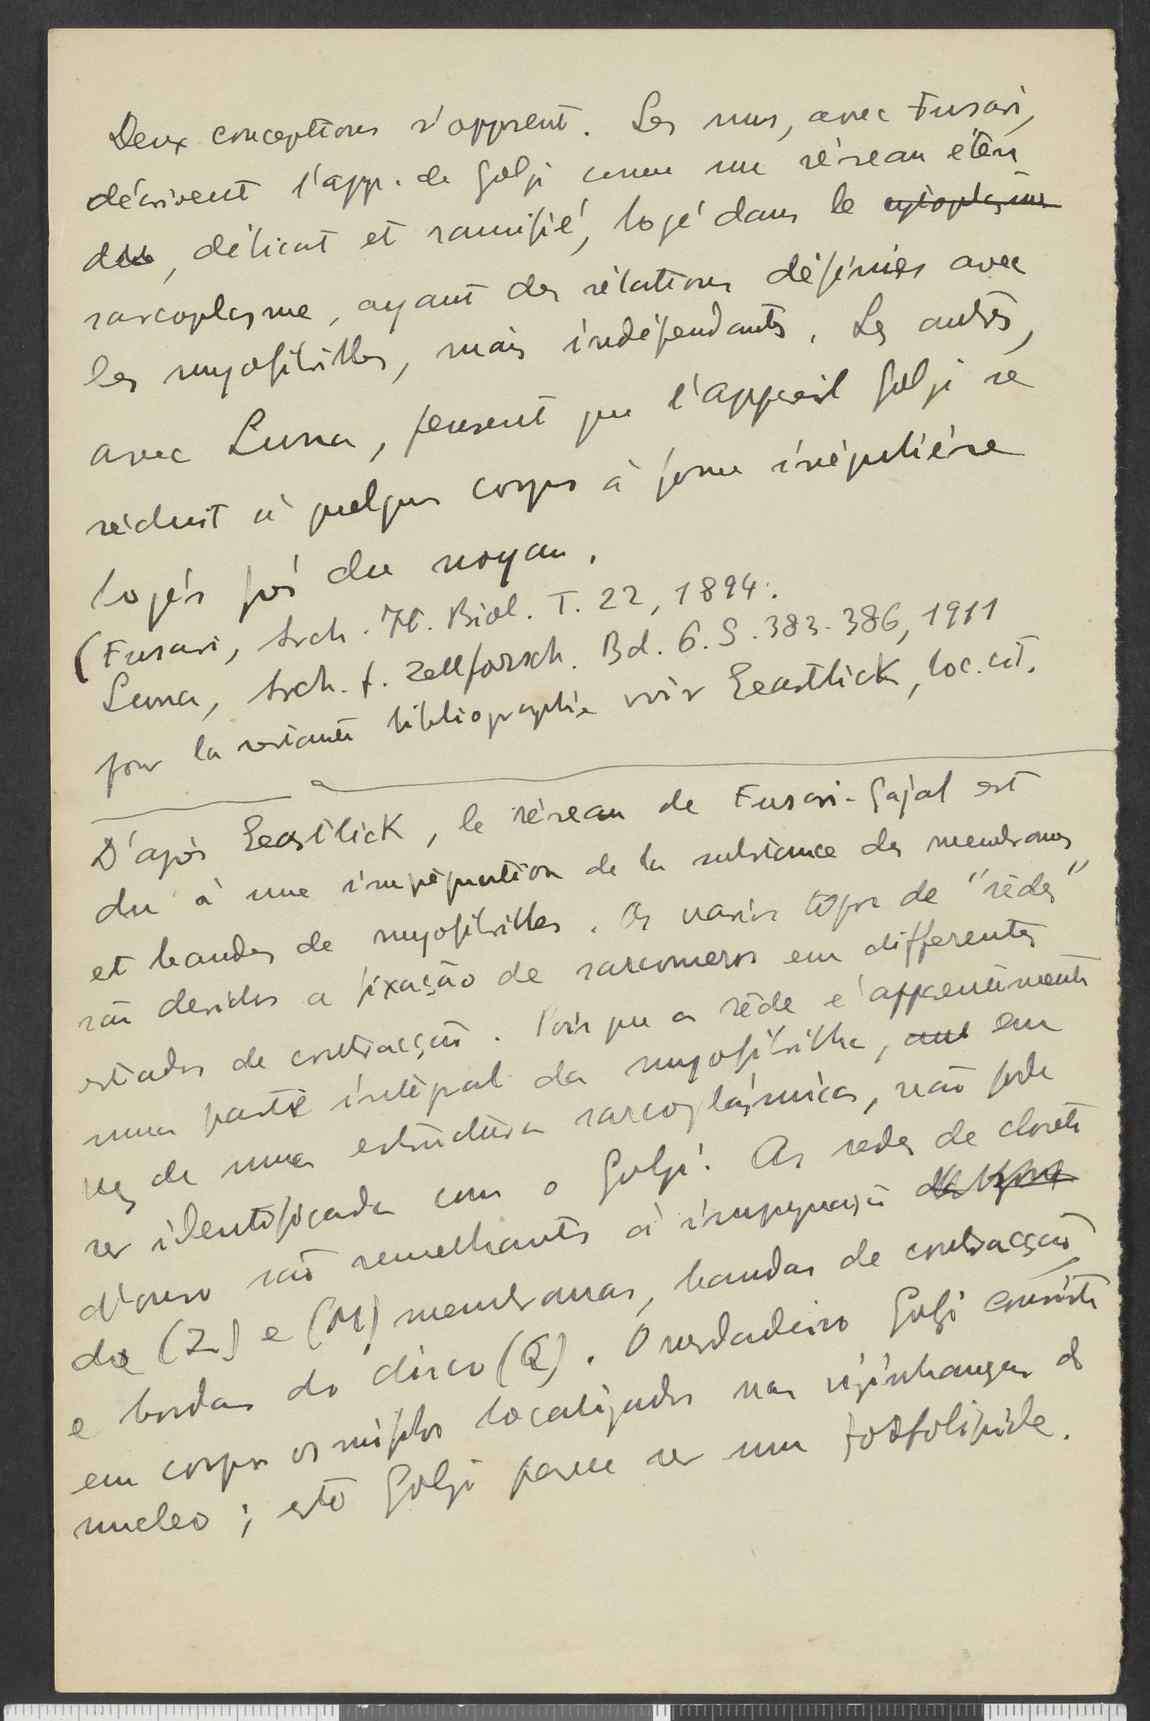 Deux conceptions s'opposent. Les uns, avec Fusari,
décrivent l'app. de Golgi comme un réseau éten
due, délicat et ramifié, logé dans le cytoplasme
sarcoplasme, ayant des rélations définies avec
les myofibrilles, mais indépendants. Les autres,
avec Luna, pensent que l'appareil Golgi se
réduit à quelques corps à forme irréguliére
logés près du noyau.
(Fusari, Arch. It. Biol. T. 22, 1894.
Luna, Arch. f. Zellforsch. Bd. 6. S. 383-386, 1911
pour la restante bibliographie voir Eeastlick, loc. cit.
D'après Eeastlick, le réseau de Fusari-Cajal est
du à une imprégnation de la substance des membranes
et bandes de myofibrilles. Os varios tipos de "rêdes"
são devidos a fixação de sarcomeros em differentes
estados de contracção. Pois que a rêde é apparentemente
uma parte integral da myofibrilha, em
vez de uma estructura sarcoplásmica, não pode
ser identificada com o Golgi. As redes de chloreto
d'ouro são semelhantes á impregnação
da (Z) e (M) membranas, bandas de contracção,
e bordas do disco (Q). O verdadeiro Golgi consiste
em corpos osmiophilos localizados nas vizinhanças do
nucleo; este Golgi parece ser um fosfolipide.